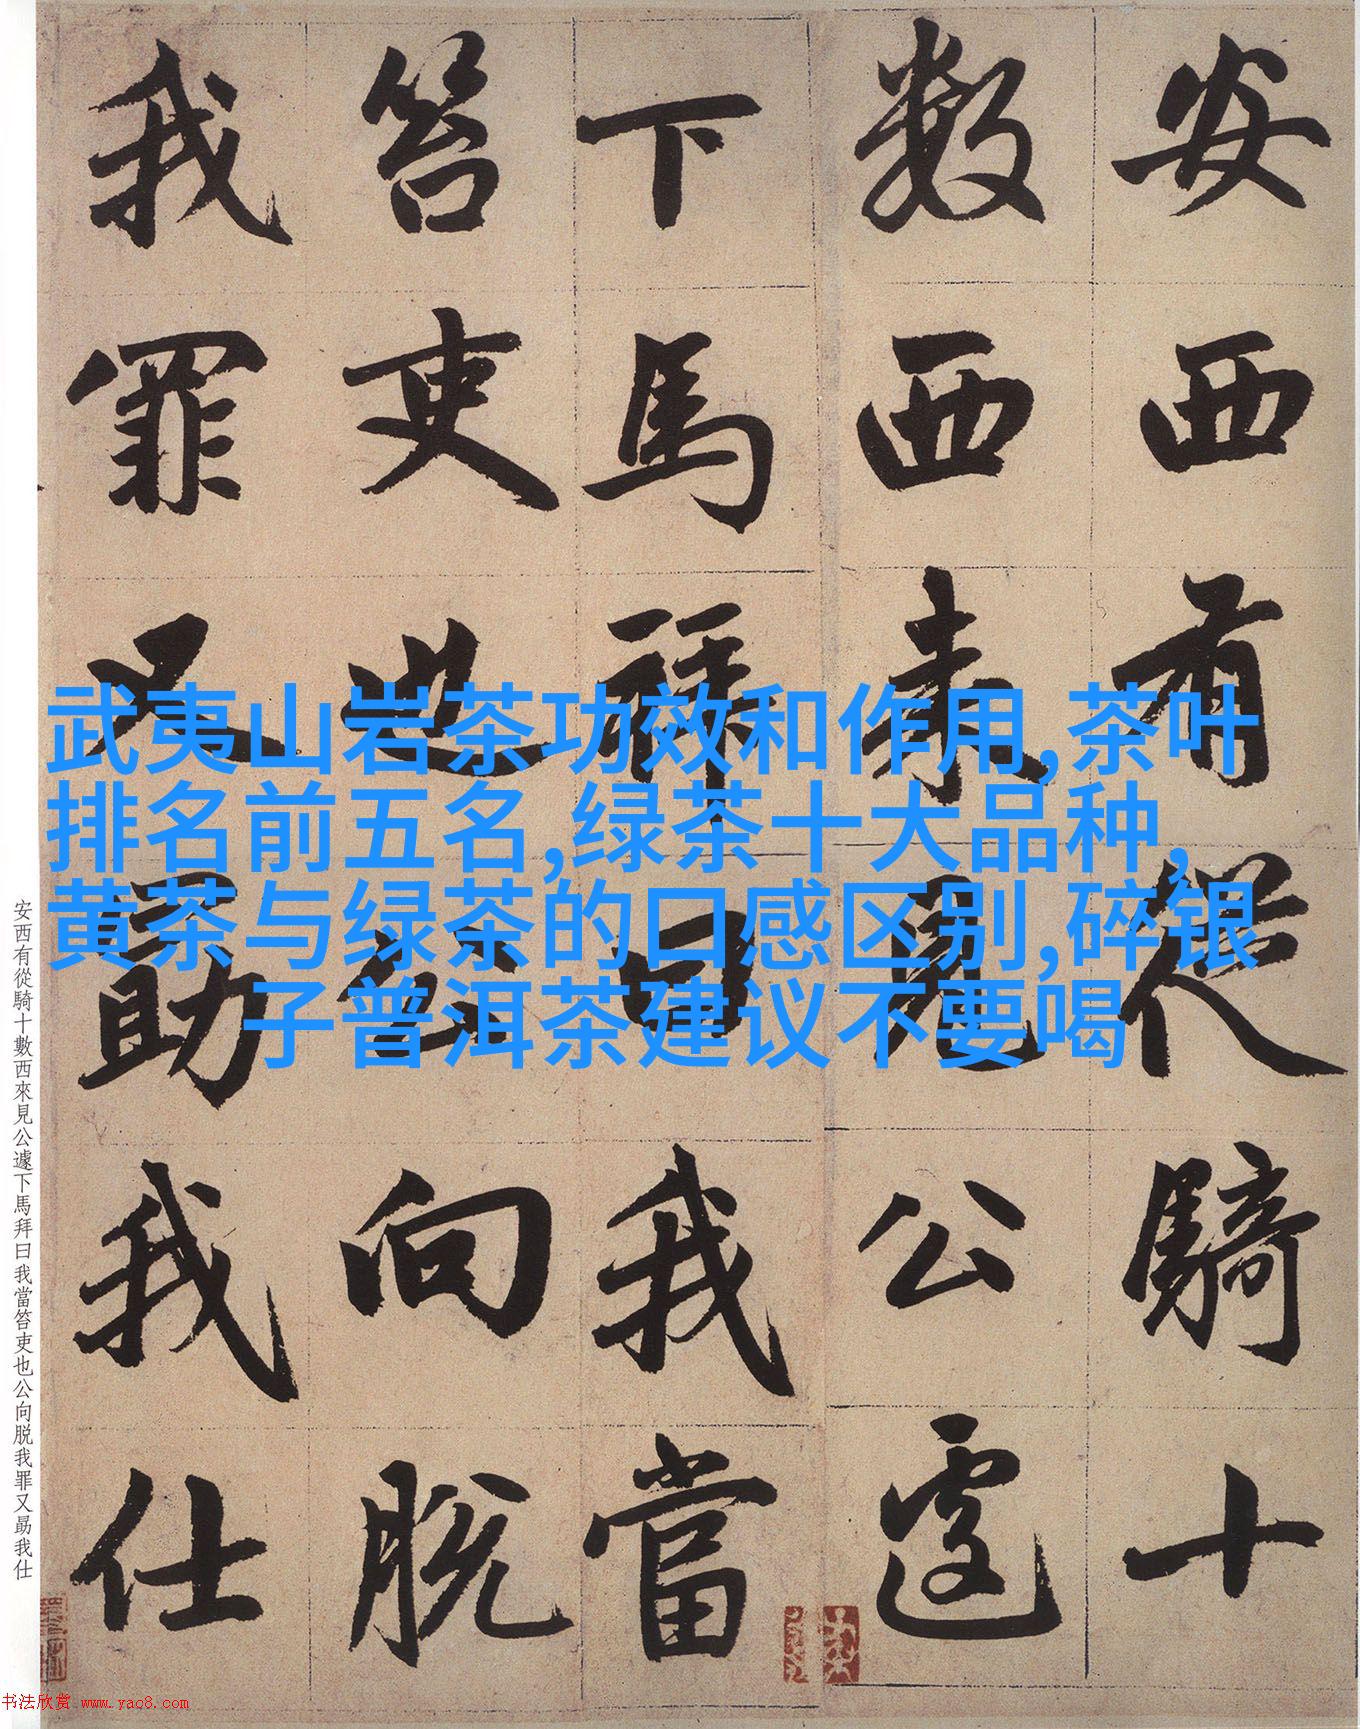 安西有從騎十
數西來見公遽
下馬拜曰我當
笞吏也公向脱
我罪又勗我仕
武夷山岩茶功效和作用,茶叶
排名前五名,绿茶十大品种,
黄茶与绿茶的口感区别,碎银
子普洱茶建议不要喝
安西有從騎十數西來見公遽下馬拜曰我當笞吏也公向脱我罪又勗我仕
书法欣赏 www.yac8.com